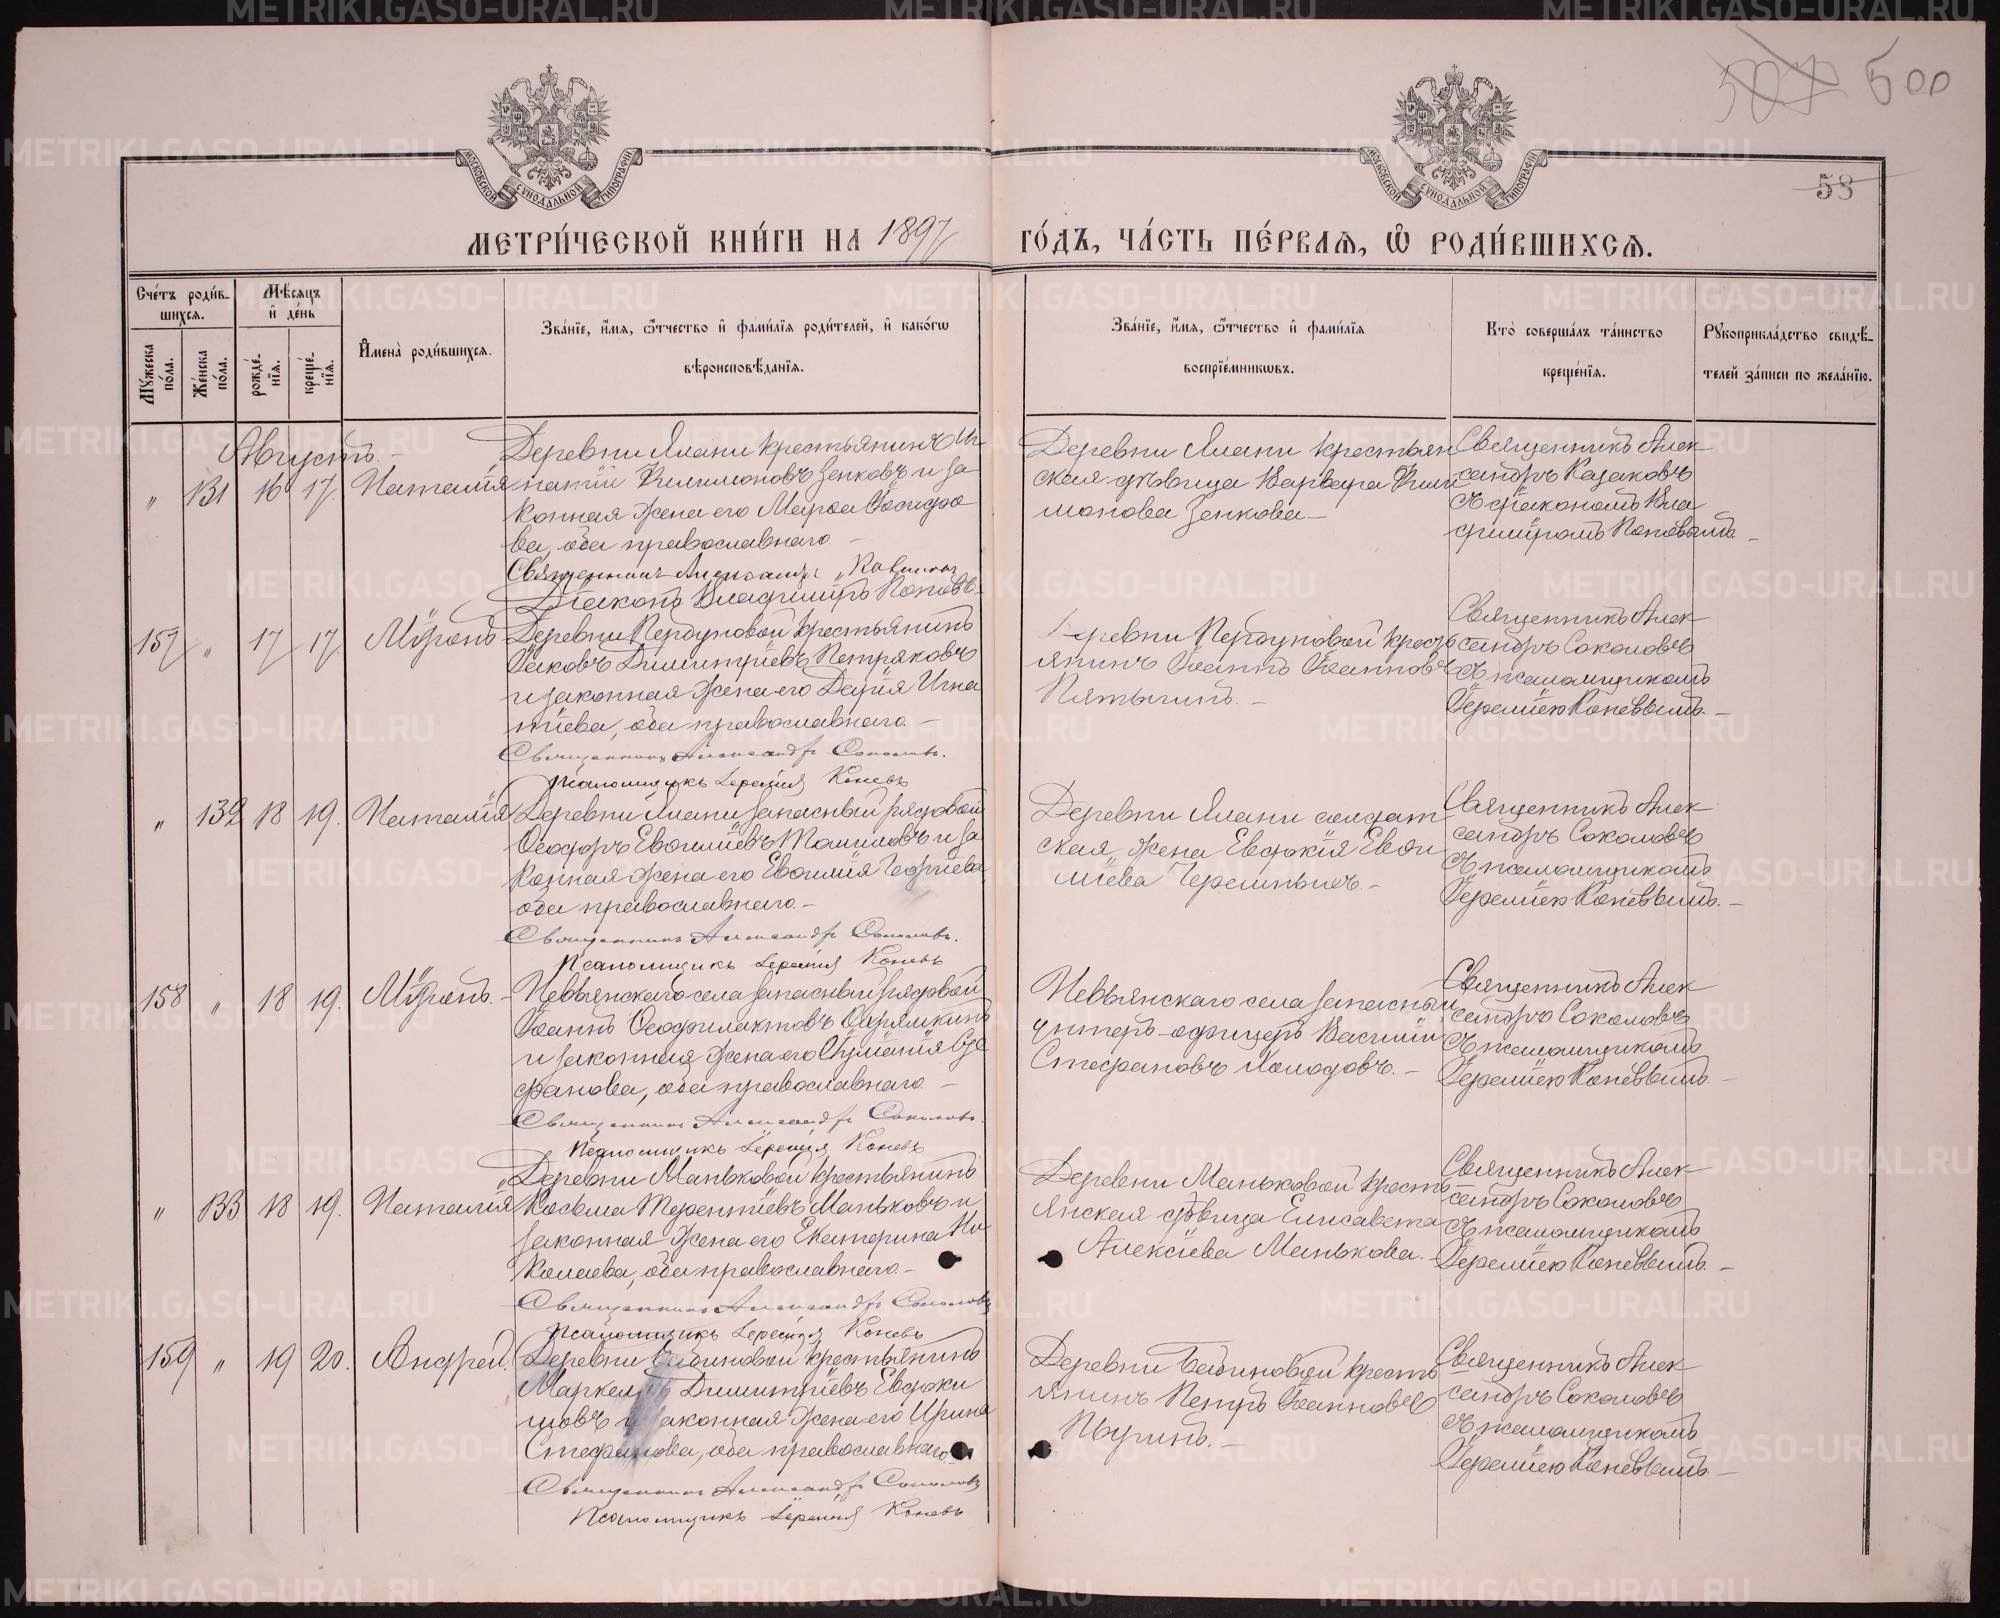 507 500
53
МОСКОВСКОЙ СУНОДАЛЬНОЙ ТИПОГРАФІИ
МОСКОВСКОЙ СУНОДАЛЬНОЙ ТИПОГРАФІИ
МЕТРИ́ЧЕСКОЙ КНИ́ГИ НА 1897
ГО́ДЪ, ЧА́СТЬ ПЕ́РВАѦ, Ѡ҆ РОДИ́ВШИХСѦ.
Сче́тъ роди́в-
шихсѧ.
Мꙋ́жеска по́ла.
Же́нска по́ла.
Мѣ́сѧцъ и҆ де́нь
рожде́-
нїѧ.
креще́-
нїѧ.
И҆мена̀ роди́вшихсѧ.
Зва́нїе, и҆́мѧ, ѻ҆́тчество и҆ фами́лїѧ роди́телей, и҆ како́гѡ
вѣроисповѣ́данїѧ.
Зва́нїе, и҆́мѧ, ѻ҆́тчество и҆ фами́лїѧ
воспрїе́мникѡвъ.
Кто̀ соверша́лъ та́инство
креще́нїѧ.
Рꙋкоприкла́дство свидѣ́-
телей за́писи по жела́нїю.
Августъ
„ 131 16 17 Наталія
Деревни Ялани крестьянинъ Иг-
натій Филимоновъ Зенковъ и за
конная жена его Марѳа Іосифо
ва, оба православнаго.
Священникъ Александръ Казаковъ
Діаконъ Владиміръ Поповъ
Деревни Ялани крестьян
ская дѣвица Варвара Фили
монова Зенкова
Священникъ Алек
сандръ Казаковъ
съ діакономъ Вла
диміромъ Поповымъ
157 „ 17 17 Мѵронъ
Деревни Пердуновой крестьянинъ
Іаковъ Димитріевъ Петряковъ
и законная жена его Дарія Игна
тіева, оба православнаго.
Священникъ Александръ Соколовъ.
Псаломщикъ Іеремія Коневъ
Деревни Пердуновой кресть
янинъ Іоаннъ Іоанновъ
Пятыгинъ.
Священникъ Алек
сандръ Соколовъ
съ псаломщикомъ
Іереміею Коневымъ.
„ 132 18 19. Наталія
Деревни Ялани запасный рядовой
Ѳеодоръ Евѳиміевъ Томиловъ и за
конная жена его Евѳимія Георгіева,
оба православнаго.
Священникъ Александръ Соколовъ.
Псаломщикъ Іеремія Коневъ
Деревни Ялани солдат
ская жена Евдокія Евѳи
міева Черемныхъ.
Священникъ Алек
сандръ Соколовъ
съ псаломщикомъ
Іереміею Коневымъ.
158 „ 18 19. Мѵронъ.
Невьянскаго села запасный рядовой
Іоаннъ Ѳеофилактовъ
и законная жена его Сте
фанова, оба православнаго
Священникъ Александръ Соколовъ.
Псаломщикъ Іеремія Коневъ
Невьянскаго села запасный
унтеръ-офицеръ Василій
Стефановъ Холодовъ.
Священникъ Алек
сандръ Соколовъ
съ псаломщикомъ
Іереміею Коневымъ.
„ 133 18 19. Наталія
Деревни Маньковой крестьянинъ
Косьма Терентіевъ Маньковъ и
законная жена его Екатерина Ни
колаева, оба православнаго.
Священникъ Александръ Соколовъ
Псаломщикъ Іеремія Коневъ
Деревни Маньковой кресть
янская дѣвица Елисавета
Алексіева Манькова.
Священникъ Алек
сандръ Соколовъ
съ псаломщикомъ
Іереміею Коневымъ.
159 „ 19 20. Андрей.
Деревни Бабиновой крестьянинъ
Маркеллъ Димитріевъ Евдоки
мовъ и законная жена его Ирина
Стефанова, оба православнаго.
Священникъ Александръ Соколовъ
Псаломщикъ Іеремія Коневъ
Деревни Бабиновой кресть
янинъ Петръ Іоанновъ
Пьуринъ.
Священникъ Алек
сандръ Соколовъ
съ псаломщикомъ
Іереміею Коневымъ.
METRIKI.GASO-URAL.RU